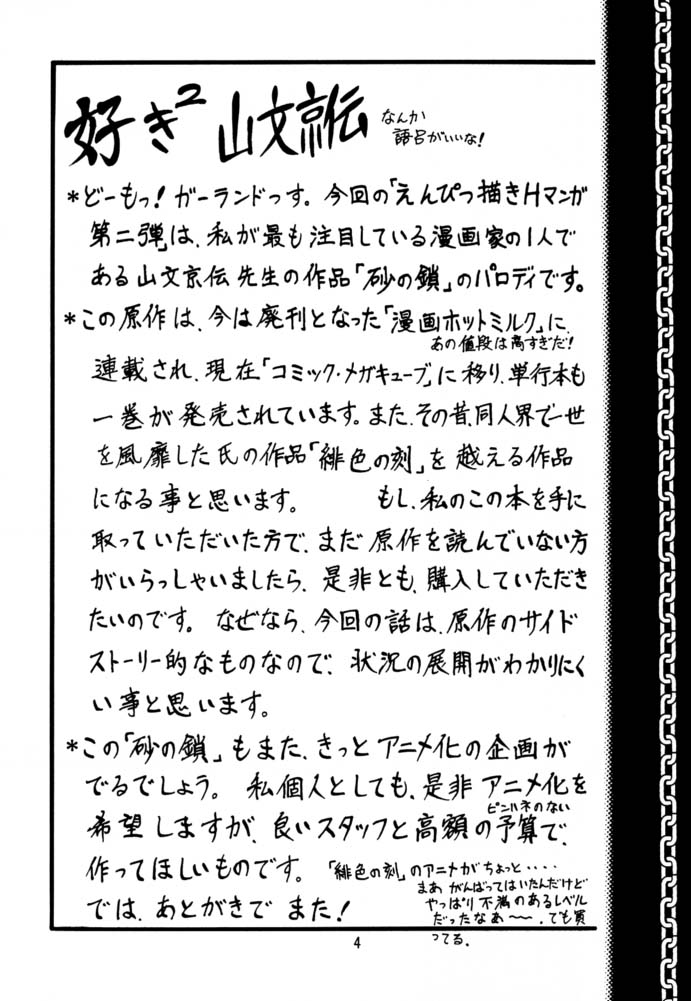 好き² 山文京伝 なんか
語呂がいいな!
*どーもっ! ガーランドっす。今回の「えんぴつ描きHマンガ
第二弾」は、私が最も注目している漫画家の1人で
ある山文京伝先生の作品「砂の鎖」のパロディです。
*この原作は、今は廃刊となった「漫画ホットミルク」に、
あの値段は高すぎだ!
連載され、現在「コミック・メガキューブ」に移り、単行本も
一巻が発売されています。また、その昔、同人界で一世
を風靡した氏の作品「緋色の刻」を越える作品
になる事と思います。 もし、私のこの本を手に
取っていただいた方で、まだ原作を読んでいない方
がいらっしゃいましたら、是非とも、購入していただき
たいのです。なぜなら、今回の話は、原作のサイド
ストーリー的なものなので、状況の展開がわかりにく
い事と思います。
*この「砂の鎖」もまた、きっとアニメ化の企画が
でるでしょう。私個人としても、是非アニメ化を
ピンハネのない
希望しますが、良いスタッフと高額の予算で、
作ってほしいものです。「緋色の刻」のアニメがちょっと・・・・
まあがんばってはいたんだけど
やっぱり不満のあるレベル
だったなあ〜〜。でも買
ってる。
では、あとがきでまた!
4